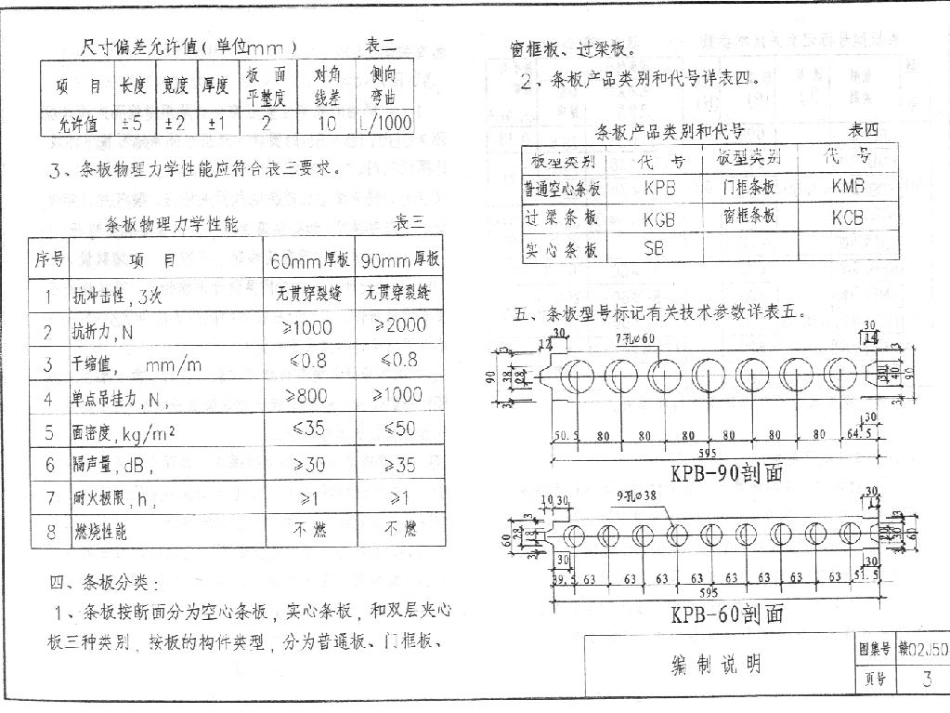 尺寸偏差允许值(单位mm) 表二
项 目 长度 宽度 厚度 板面平整度 对角线差 侧向弯曲
允许值 ±5 ±2 ±1 2 10 L/1000
3、条板物理力学性能应符合表三要求。
条板物理力学性能 表三
序号 项 目 60mm厚板 90mm厚板
1 抗冲击性,3次 无贯穿裂缝 无贯穿裂缝
2 抗折力,N ≥1000 ≥2000
3 干缩值, mm/m ≤0.8 ≤0.8
4 单点吊挂力,N, ≥800 ≥1000
5 面密度,kg/m2 ≤35 ≤50
6 隔声量,dB, ≥30 ≥35
7 耐火极限,h, ≥1 ≥1
8 燃烧性能 不燃 不燃
四、条板分类:
1、条板按断面分为空心条板,实心条板,和双层夹心
板三种类别,按板的构件类型,分为普通板、门框板、
窗框板、过梁板。
2、条板产品类别和代号详表四。
条板产品类别和代号 表四
板型类别 代 号 板型类别 代 号
普通空心条板 KPB 门框条板 KMB
过梁条板 KGB 窗框条板 KCB
实心条板 SB
五、条板型号标记有关技术参数详表五。
7孔⌀60
30
90 38
40 90
30
50.5 80 80 80 80 80 80 64.5
595
KPB-90剖面
9孔⌀38
10 30
30
60 28 18
60
30
30
39.5 63 63 63 63 63 63 63 63 51.5
595
KPB-60剖面
编制说明
图集号 赣02J50
页号 3